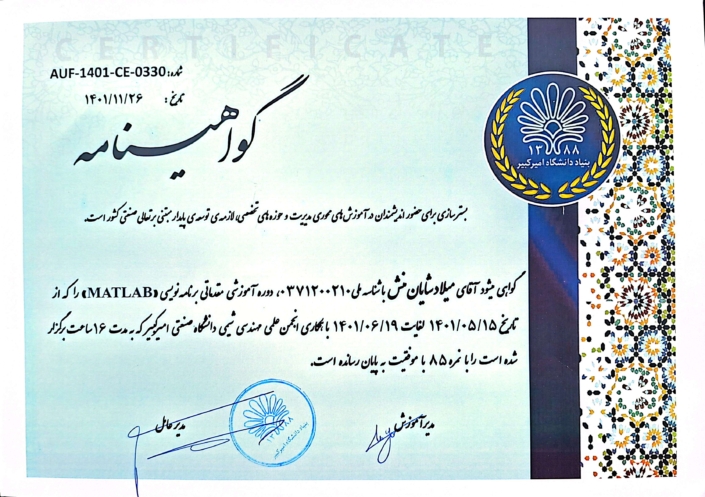 CERTIFICATE
شماره: AUF-1401-CE-0330
تاریخ: ۱۴۰۱/۱۱/۲۶
گواهینامه
۱۳۸۸
بنیاد دانشگاه امیرکبیر
بسترسازی برای حضور اندیشمندان در آموزش‌های محوری مدیریت و حوزه‌های تخصصی، لازمه‌ی توسعه‌ی پایدار مبتنی بر تعالی صنعتی کشور است.
گواهی میشود آقای میلاد شایان منش با شناسه ملی ۰۳۷۱۲۰۰۲۱۰، دوره آموزشی مقدماتی برنامه نویسی «MATLAB» را که از
تاریخ ۱۴۰۱/۰۵/۱۵ لغایت ۱۴۰۱/۰۶/۱۹ با همکاری انجمن علمی مهندسی شیمی دانشگاه صنعتی امیرکبیر که به مدت ۱۶ ساعت برگزار
شده است را با نمره ۸۵ با موفقیت به پایان رسانده است.
مدیر آموزش
مدیر عامل
۱۳۸۸
بنیاد دانشگاه امیرکبیر